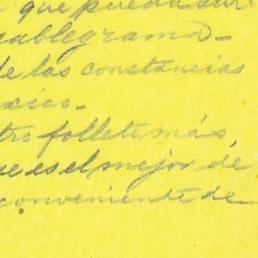 que pueda ser
cablegrama-
de las constancias
xico-
tro folleto más,
ue es el mejor de
conveniente de